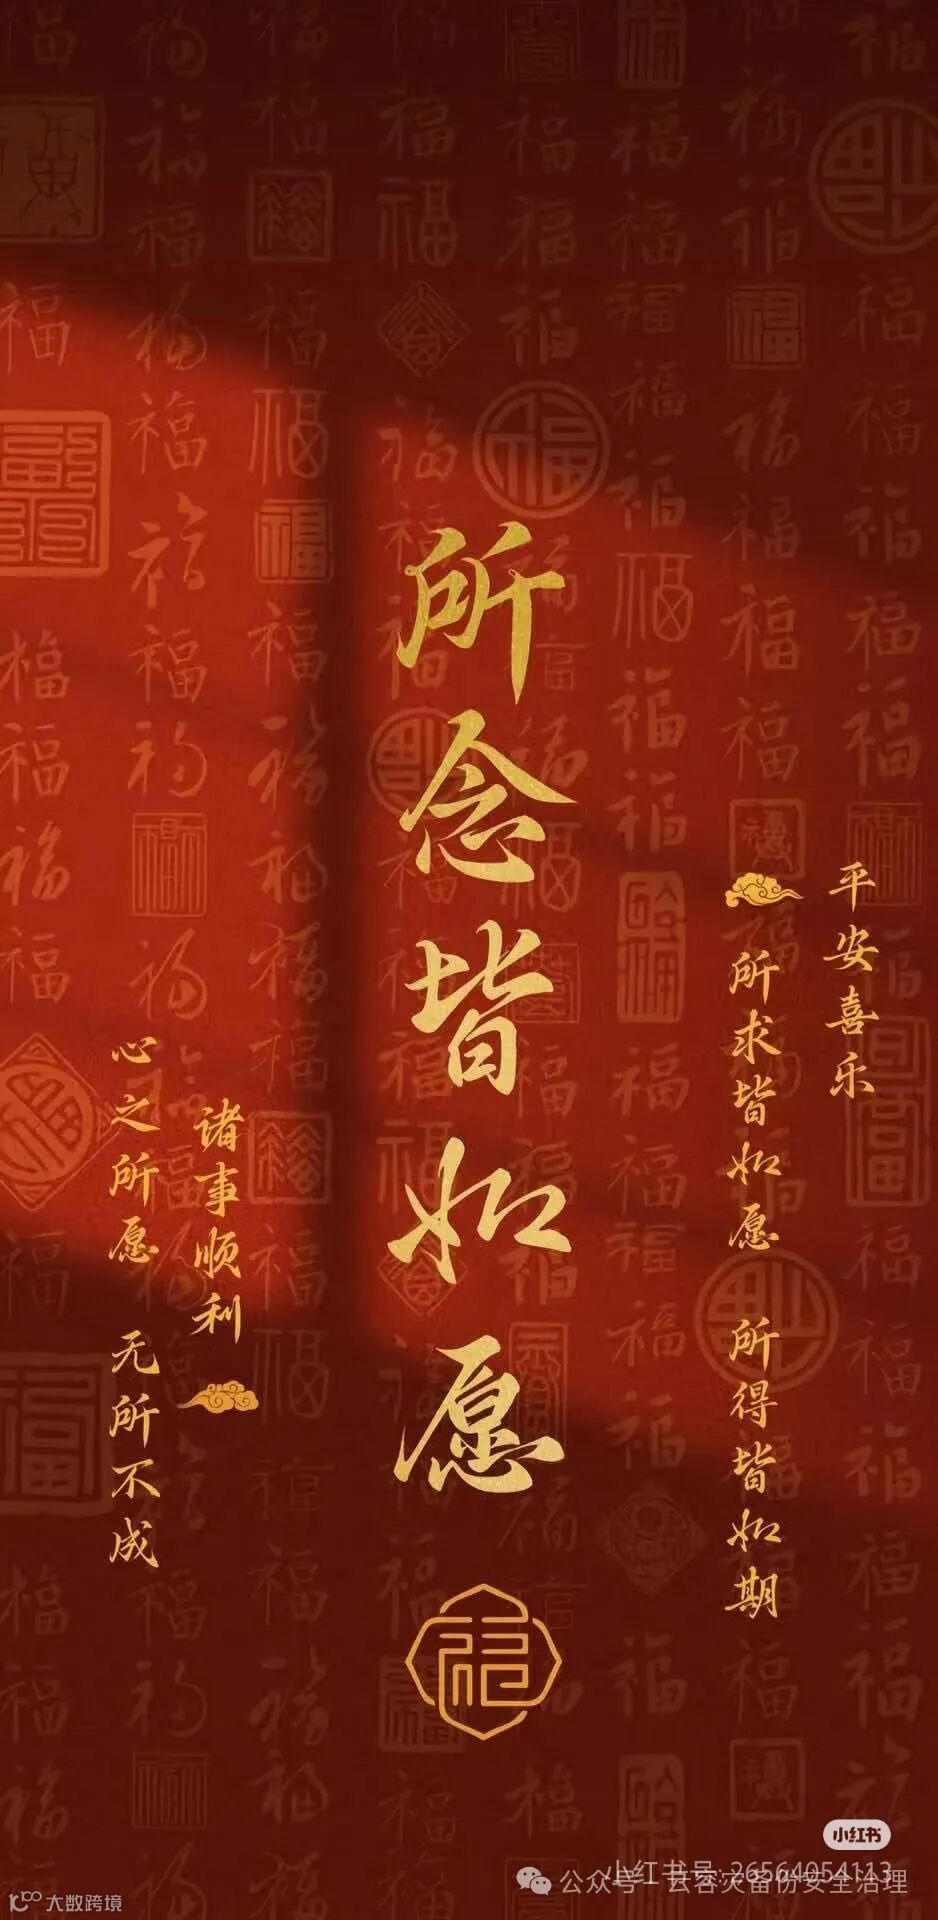 平安喜乐
所求皆如愿 所得皆如期
所念皆如愿
诸事顺利
心之所愿 无所不成
福
小红书
小红书号 26564054113
公众号 云容灾备份安全治理
大数跨境